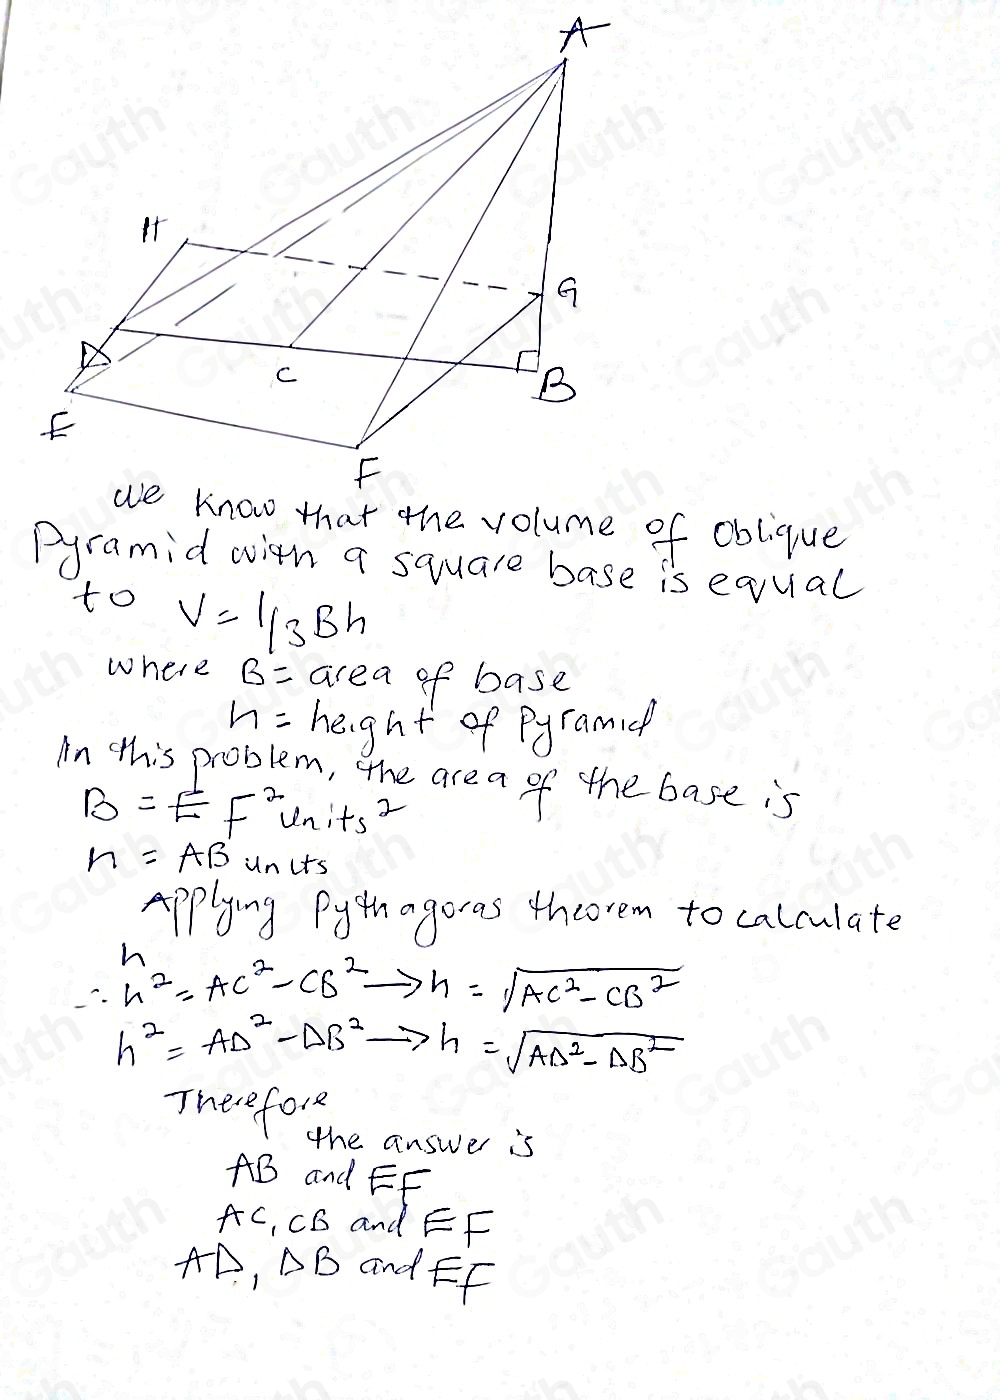 A
H
G
D
C
B
E
F
we know that the volume of oblique
Pyramid with a square base is equal
to V = 1/3 Bh
where B = area of base
h = height of Pyramid
In this problem, the area of the base is
B = EF² units²
h = AB units
Applying Pythagoras theorem to calculate
h
∴ h² = AC² - CB² → h = √AC² - CB²
h² = AD² - DB² → h = √AD² - DB²
Therefore
the answer is
AB and EF
AC, CB and EF
AD, DB and EF